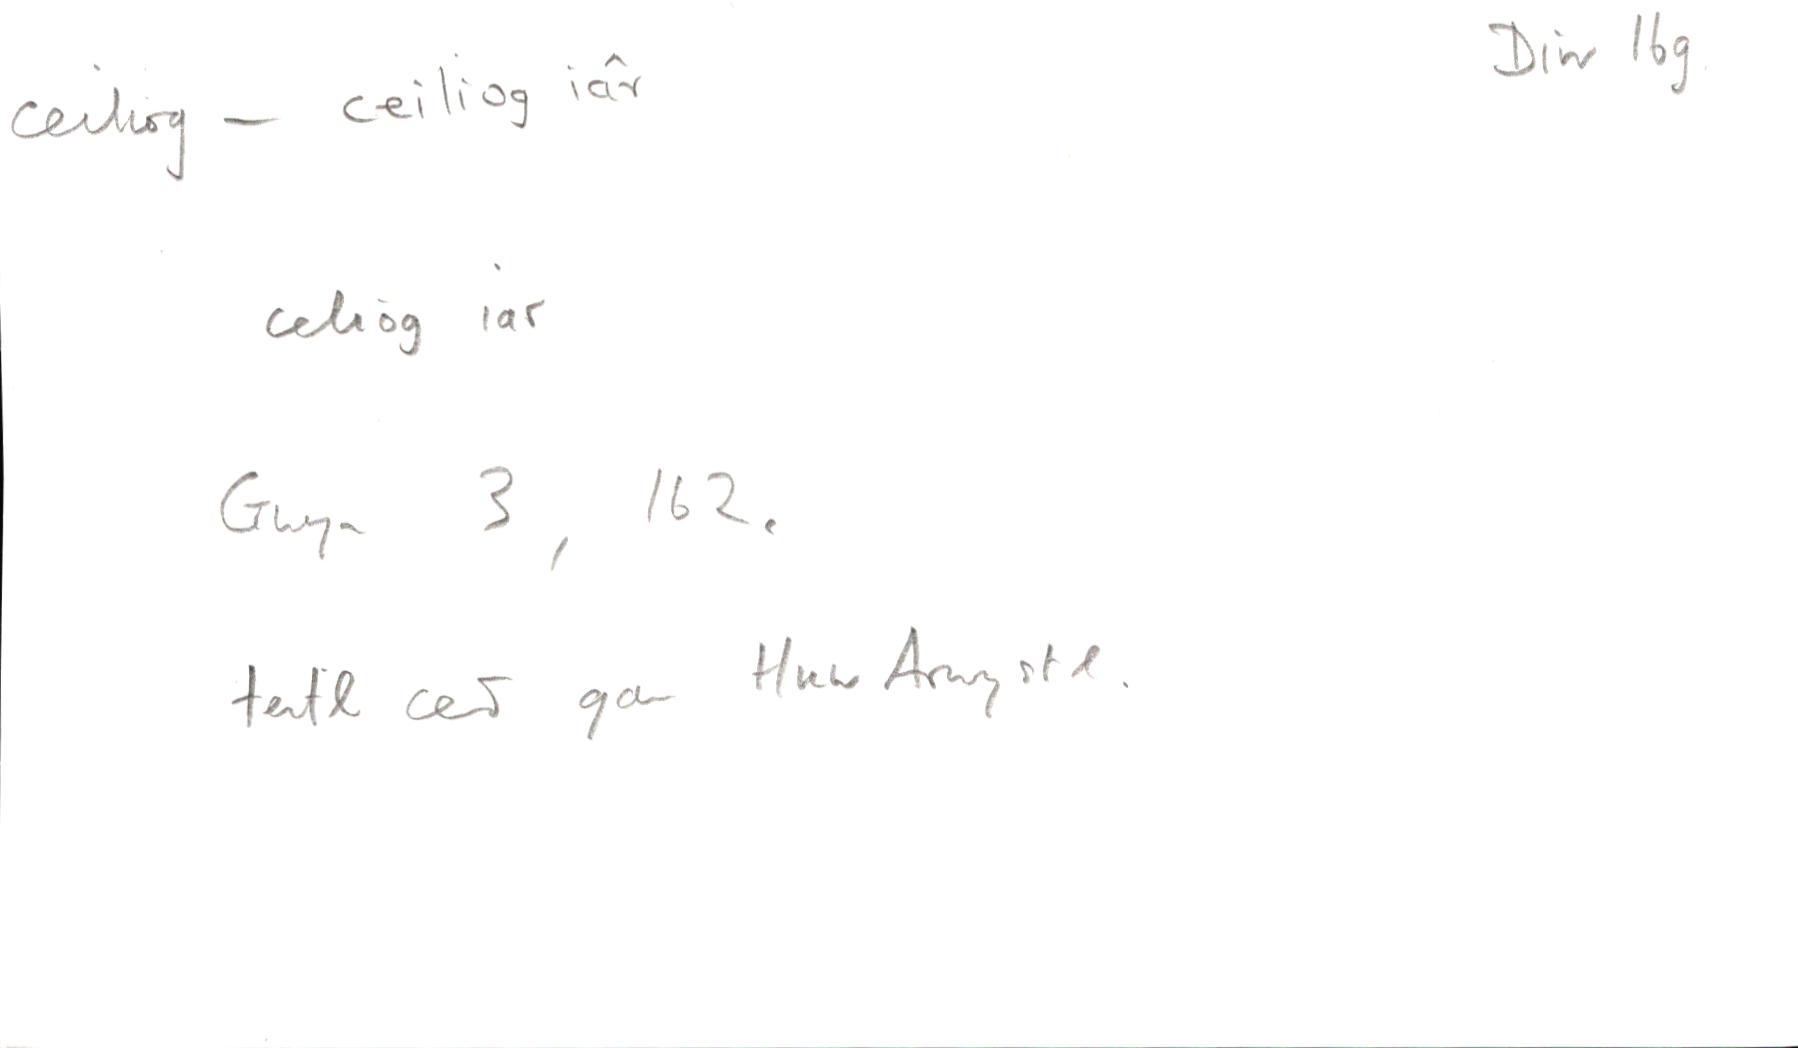 Diw 16g.
ceiliog – ceiliog iâr
celiog iar
Gwyn 3, 162.
teitl cerdd gan Huw Arwystl.